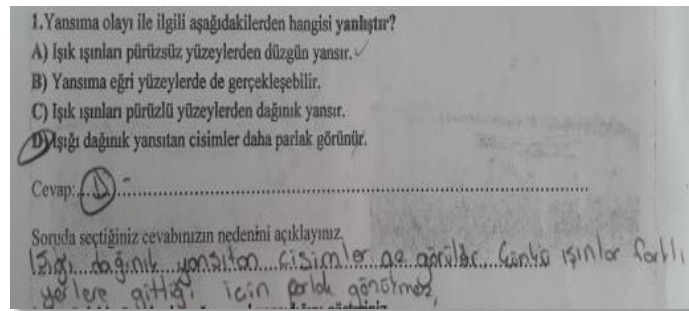 1.Yansıma olayı ile ilgili aşağıdakilerden hangisi yanlıştır?
A) Işık ışınları pürüzsüz yüzeylerden düzgün yansır. ✓
B) Yansıma eğri yüzeylerde de gerçekleşebilir.
C) Işık ışınları pürüzlü yüzeylerden dağınık yansır.
D) Işığı dağınık yansıtan cisimler daha parlak görünür.
Cevap:....D....
Soruda seçtiğiniz cevabınızın nedenini açıklayınız.
Işığı dağınık yansıtan cisimler az görülür. Çünkü ışınlar farklı
yerlere gittiği için parlak görünmez,